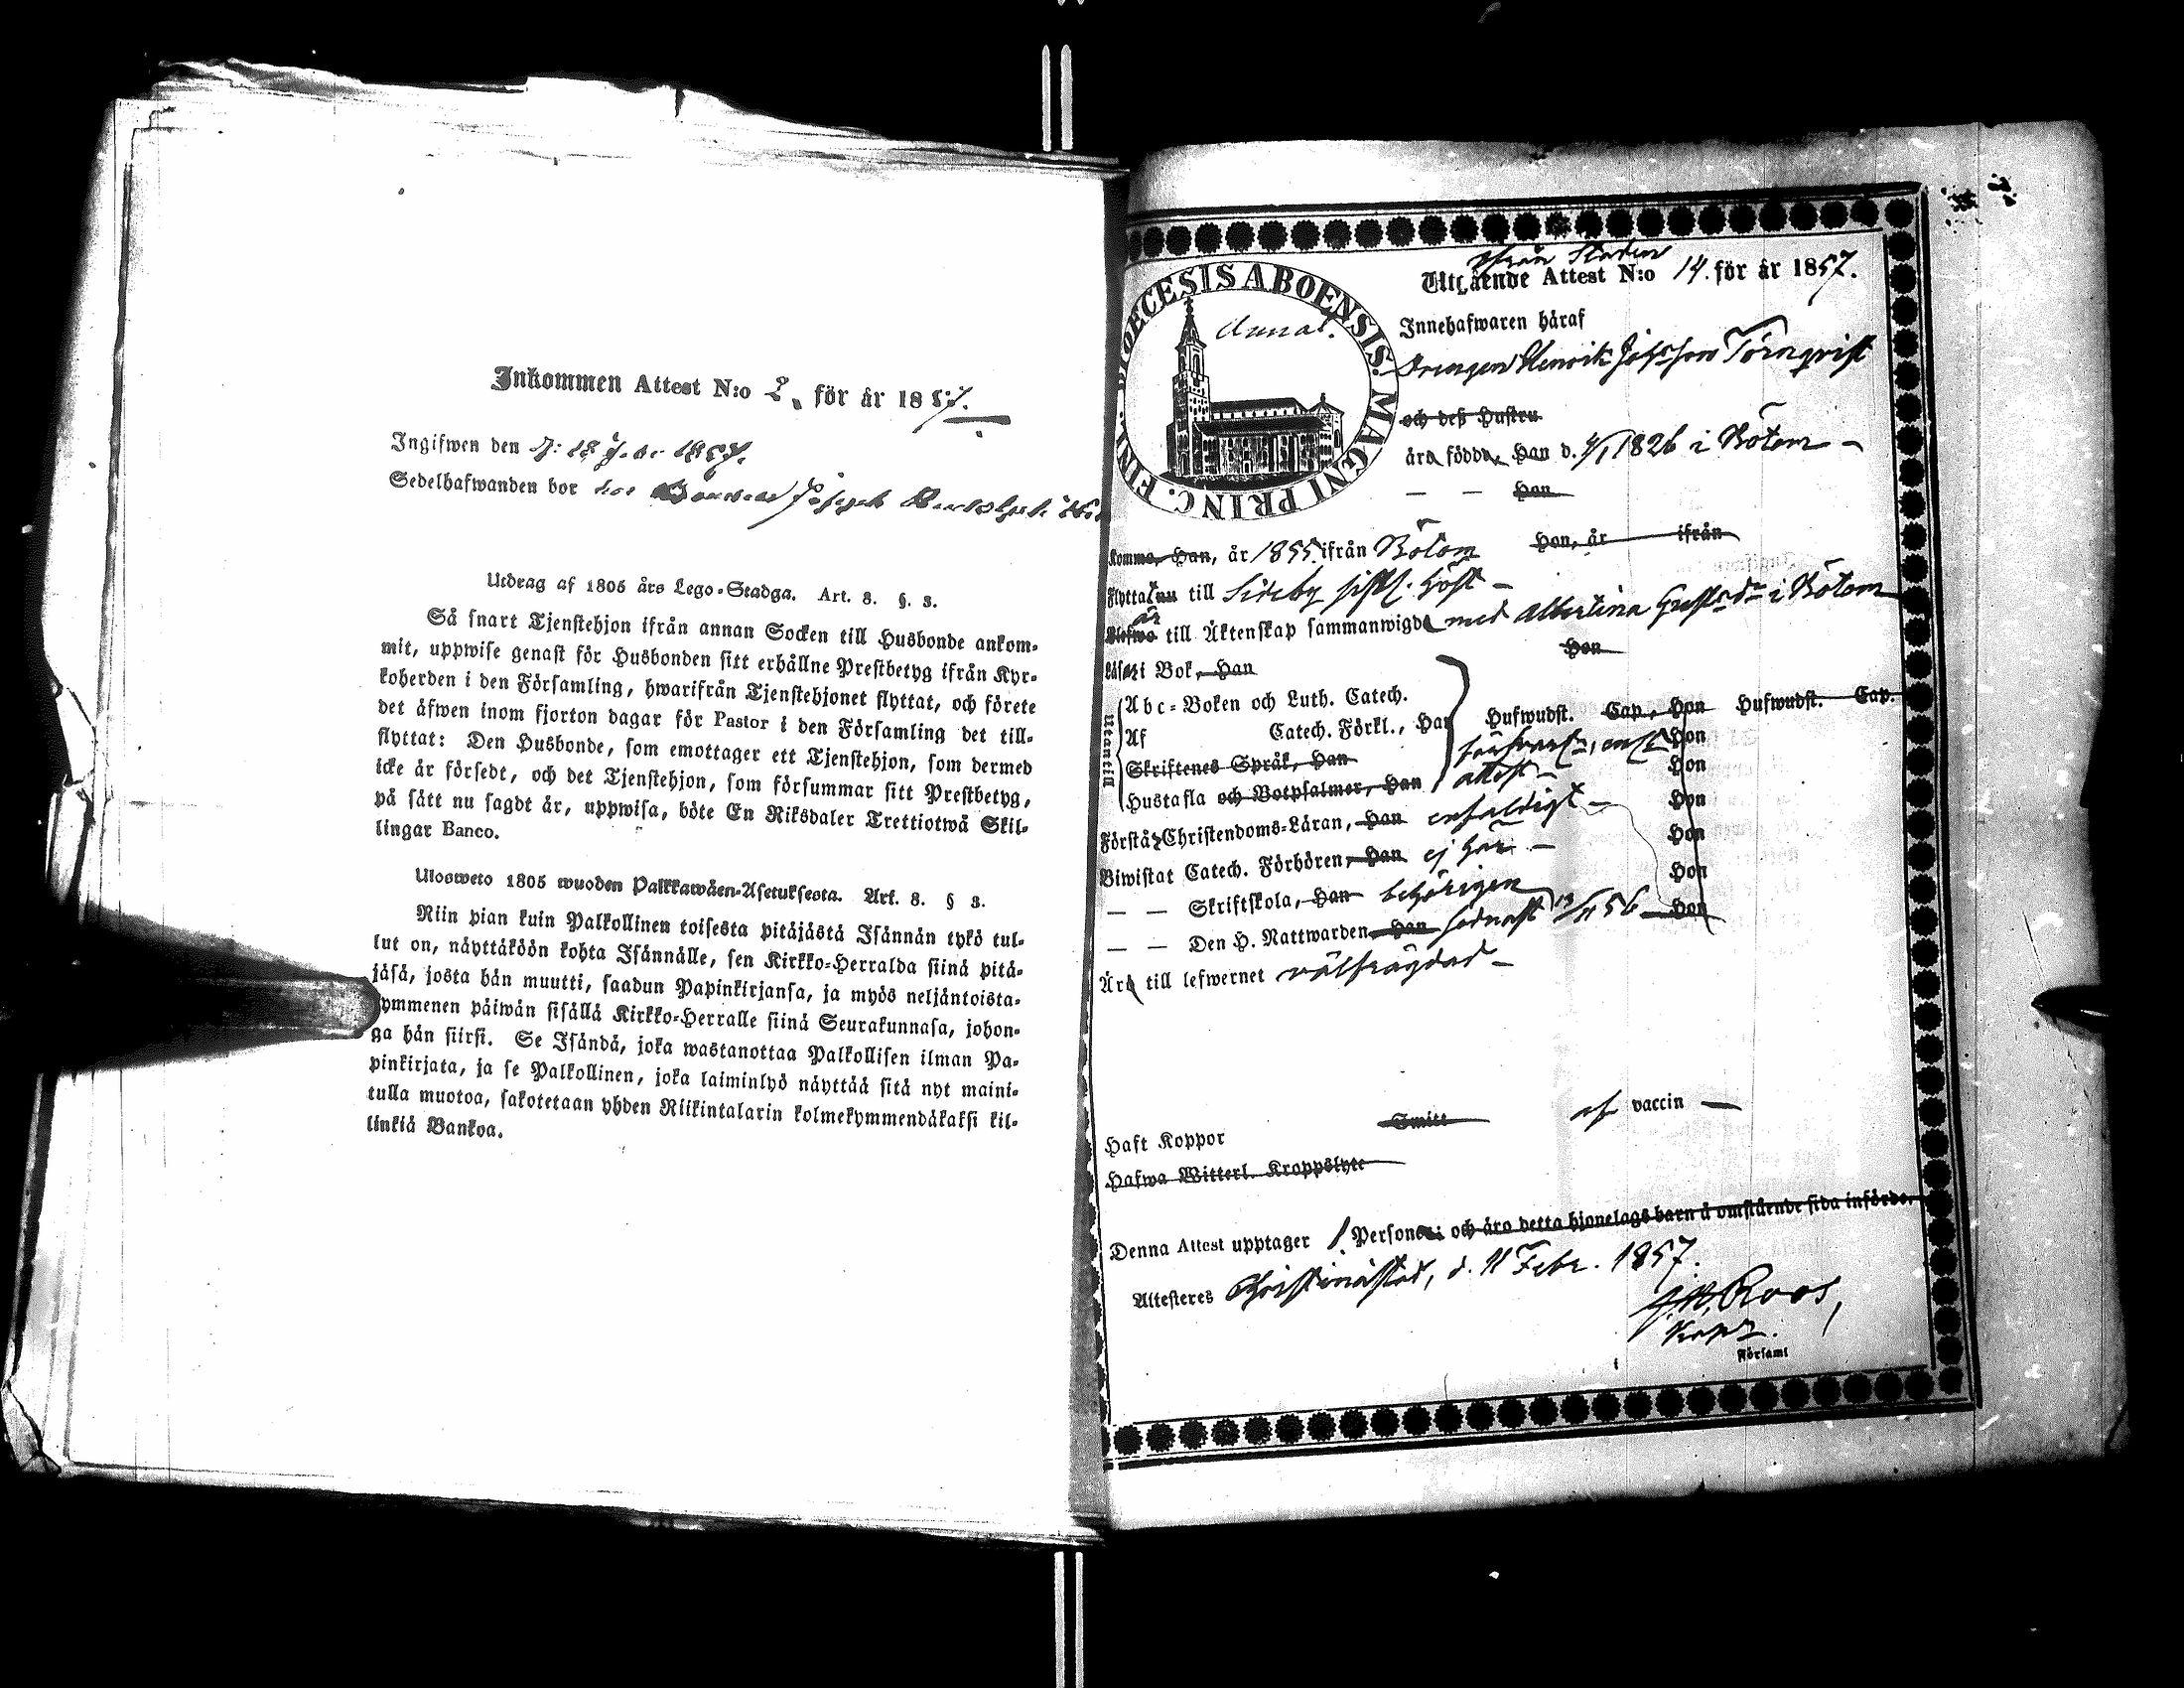 Inkommen Attest N:o 2. för år 1857.
Ingifwen den
Sedelhafwanden bor hos
Utdrag af 1805 års Lego-Stadga. Art. 8. §. 3.
Så snart Tjenstehjon ifrån annan Socken till Husbonde ankom-
mit, uppwise genast för Husbonden sitt erhållne Prestbetyg ifrån Kyr-
koherden i den Församling, hwarifrån Tjenstehjonet flyttat, och förete
det äfwen inom fjorton dagar för Pastor i den Församling det till-
flyttat: Den Husbonde, som emottager ett Tjenstehjon, som dermed
icke är försedt, och det Tjenstehjon, som försummar sitt Prestbetyg,
på sätt nu sagdt är, uppwisa, böte En Riksdaler Trettiotwå Skil-
lingar Banco.
Ulosweto 1805 wuoden Palkkawäen-Asetuksesta. Art. 8. § 3.
Niin pian kuin Palkollinen toisesta pitäjästä Isännän tykö tul-
lut on, näyttäköön kohta Isännälle, sen Kirkko-Herralda siinä pitä-
jäsä, josta hän muutti, saadun Papinkirjansa, ja myös neljäntoista-
ymmenen päiwän sisällä Kirkko-Herralle siinä Seurakunnasa, johon-
ga hän siirsi. Se Isändä, joka wastanottaa Palkollisen ilman Pa-
pinkirjata, ja se Palkollinen, joka laiminlyö näyttää sitä nyt maini-
tulla muotoa, sakotetaan yhden Riikintalarin kolmekymmendäkaksi kil-
linkiä Bankoa.
DIOECESIS ABOENSIS. MAGNI PRINC. FINL.
ifrån Staden
Utgående Attest N:o 14. för år 1857.
Innehafwaren häraf
Drengen Henrik Johsson Törnqvist
och deß Hustru
äro födde, Han d. 4/1 1826 i Bötom
— — Hon
Komma, Han, år 1855. ifrån Bötom Hon, år ifrån
Flytta nu till Sideby sistl. höst
är
Blefwo till Äktenskap sammanwigde med Albertina Gustsdr i Bötom
Läsa i Bok, Han Hon
Utantill
Abc-Boken och Luth. Catech.
Af Catech. Förkl., Han Hufwudst. Cap., Hon Hufwudst. Cap.
Skriftenes Språk, Han Hon
Hustafla och Botpsalmer, Han attest Hon
Förstå Christendoms-Läran, Han enfaldigt Hon
Biwistat Catech. Förhören, Han ej här Hon
— — Skriftskola, Han behörigen Hon
— — Den H. Nattwarden Han sednast 19/11 56 Hon
Äro till lefwernet välfrägdad
Haft Koppor Smitt af vaccin
Hafwa Witterl. Kroppslyte
Denna Attest upptager 1 Personer: och äro detta hjonelags barn å omstående sida införde.
Attesteres Christinæstad, d. 11 Febr. 1857.
Roos,
Kapl.
Församl